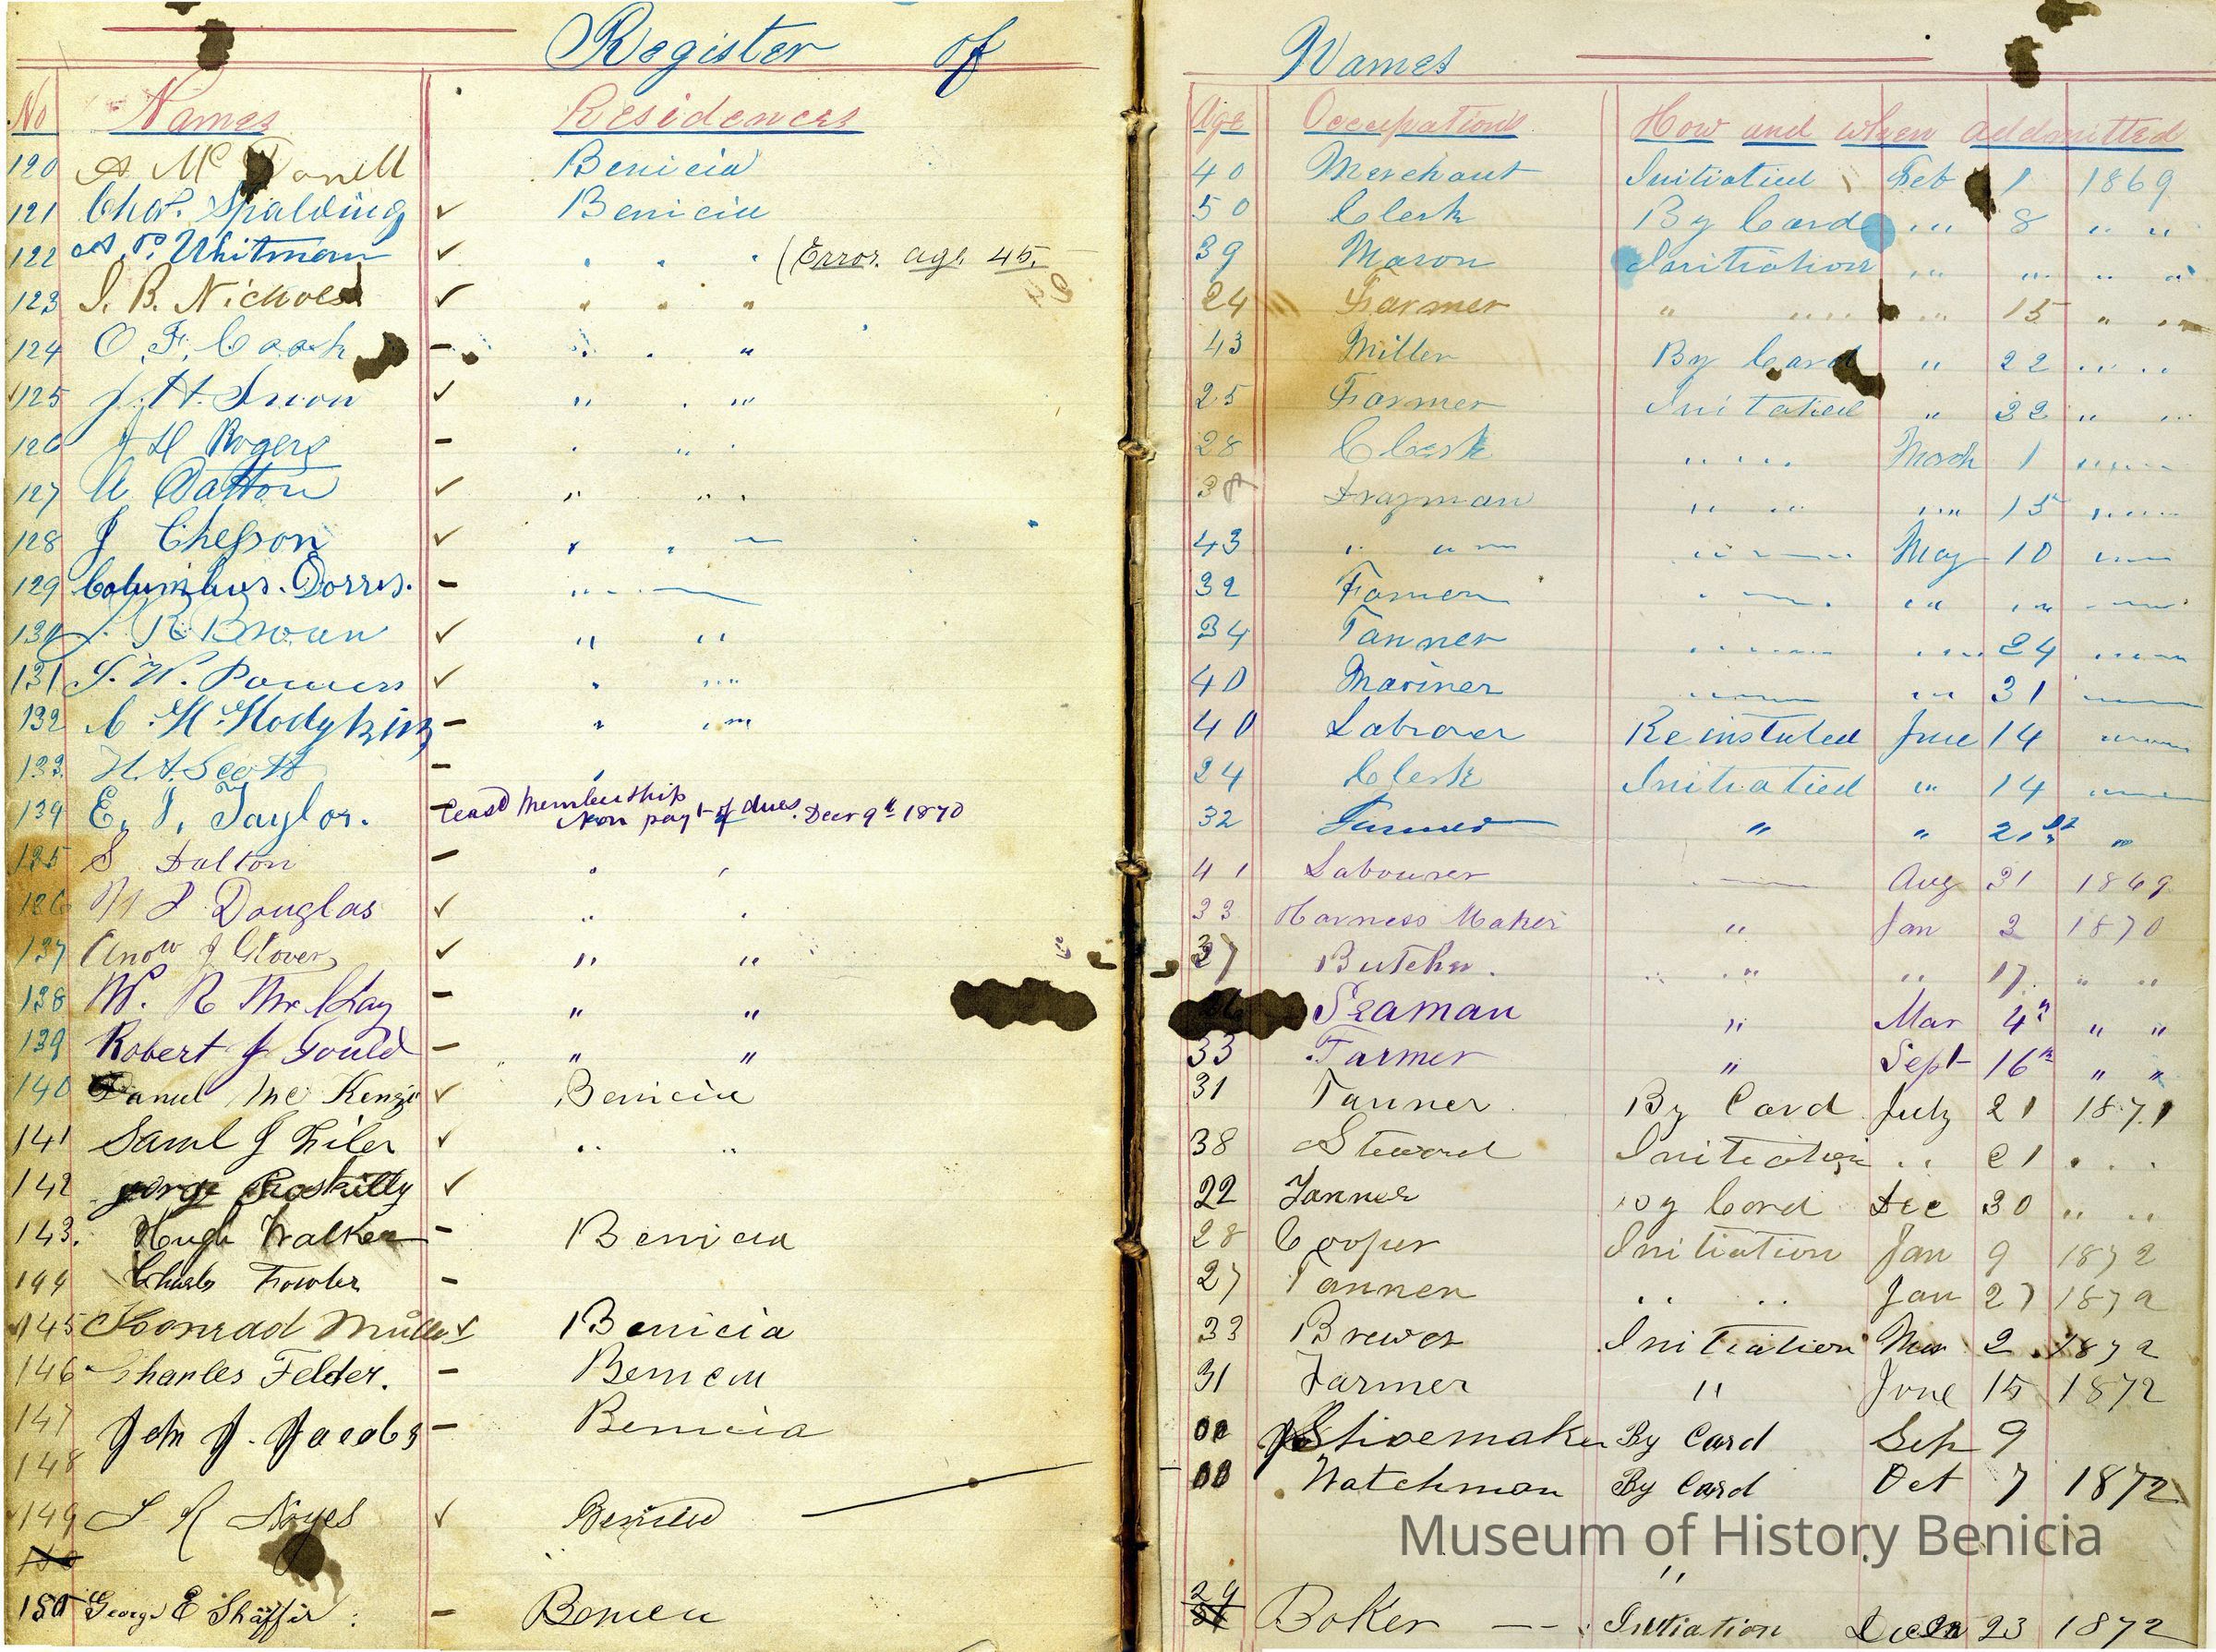 Register of Names
No Names Residences Age Occupations How and when addmitted
120 A Mc Donell Benicia 40 Merchant Initiatied Feb 1 1869
121 Chas. Spalding ✓ Benicia 50 Clerk By Card " 8 " "
122 A. P. Whitman ✓ " " " (Error. age 45. 39 Mason Initiation " " " "
123 I. B. Nichols ✓ " " " 24 Farmer " " " 15 " "
124 O. F. Cook - " " " 43 Miller By Card " 22 " "
125 J. H. Snow ✓ " " " 25 Farmer Initated " 22 " "
126 J H Rogers - " " " 28 Clerk " " March 1 " "
127 A Dalton ✓ " " " Drayman " " " 15 " "
128 J Chesson ✓ " " 43 " " " " May 10 " "
129 Columbus. Dorris. - " " 32 Farmer " " " " " "
130 J. R Brown ✓ " " 34 Tanner " " " 24 " "
131 S. W. Powers ✓ " " 40 Mariner " " " 31 " "
132 C. H. Hodgkins - " " 40 Labrorer Reinstuted June 14 " "
133. H. A. Scott - " 24 Clerk Initiatied " 14 " "
134 E. J. Taylor. - Ceasd Membership Non payt of dues. Decr 9th 1870 32 " " 21st "
135 S Dalton - " " 41 Labourer Aug 31 1869
136 Douglas ✓ " " 33 Harness Maker " Jan 2 1870
137 J Glover ✓ " " Butcher. " " " 17 " "
138 W. R McKay - " " Seaman " Mar 4th " "
139 Robert J Gould - " " 33 Farmer " Sept 16th " "
140 Daniel Mc Kenzie ✓ Benicia 31 Tanner By Card July 21 1871
141 Saml J ✓ " " 38 Steward Initiation " 21 " "
142 George ✓ 22 Tanner By Card Dec 30 " "
143. Hugh Walker - Benicia 28 Cooper Initiation Jan 9 1872
144 Charls Fowler - 27 Tanner " " Jan 27 1872
145 Konrad Muller ✓ Benicia 33 Brewer Initiation Mar 2 1872
146 Charles Felder. - Benicia 31 Farmer " June 15 1872
147 John J. Jacobs - Benicia Shoemaker By Card Sep 9
148 Watchman By Card Oct 7 1872
149 S R Noyes ✓ Benicia
Museum of History Benicia
"
150 George E Shäffer. - Benicia 29 Baker -- Initiation Decm 23 1872